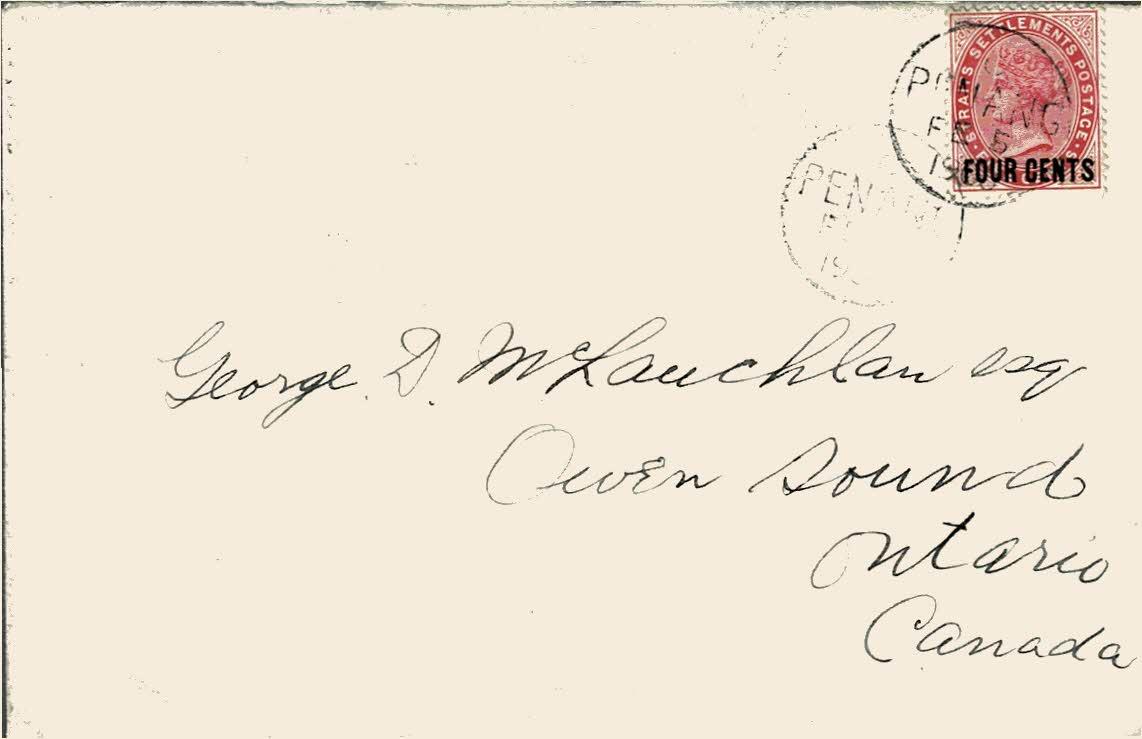 STRAITS SETTLEMENTS POSTAGE
FOUR CENTS
PENANG
FE 5
George. D. McLauchlan esq
Owen Sound
Ontario
Canada